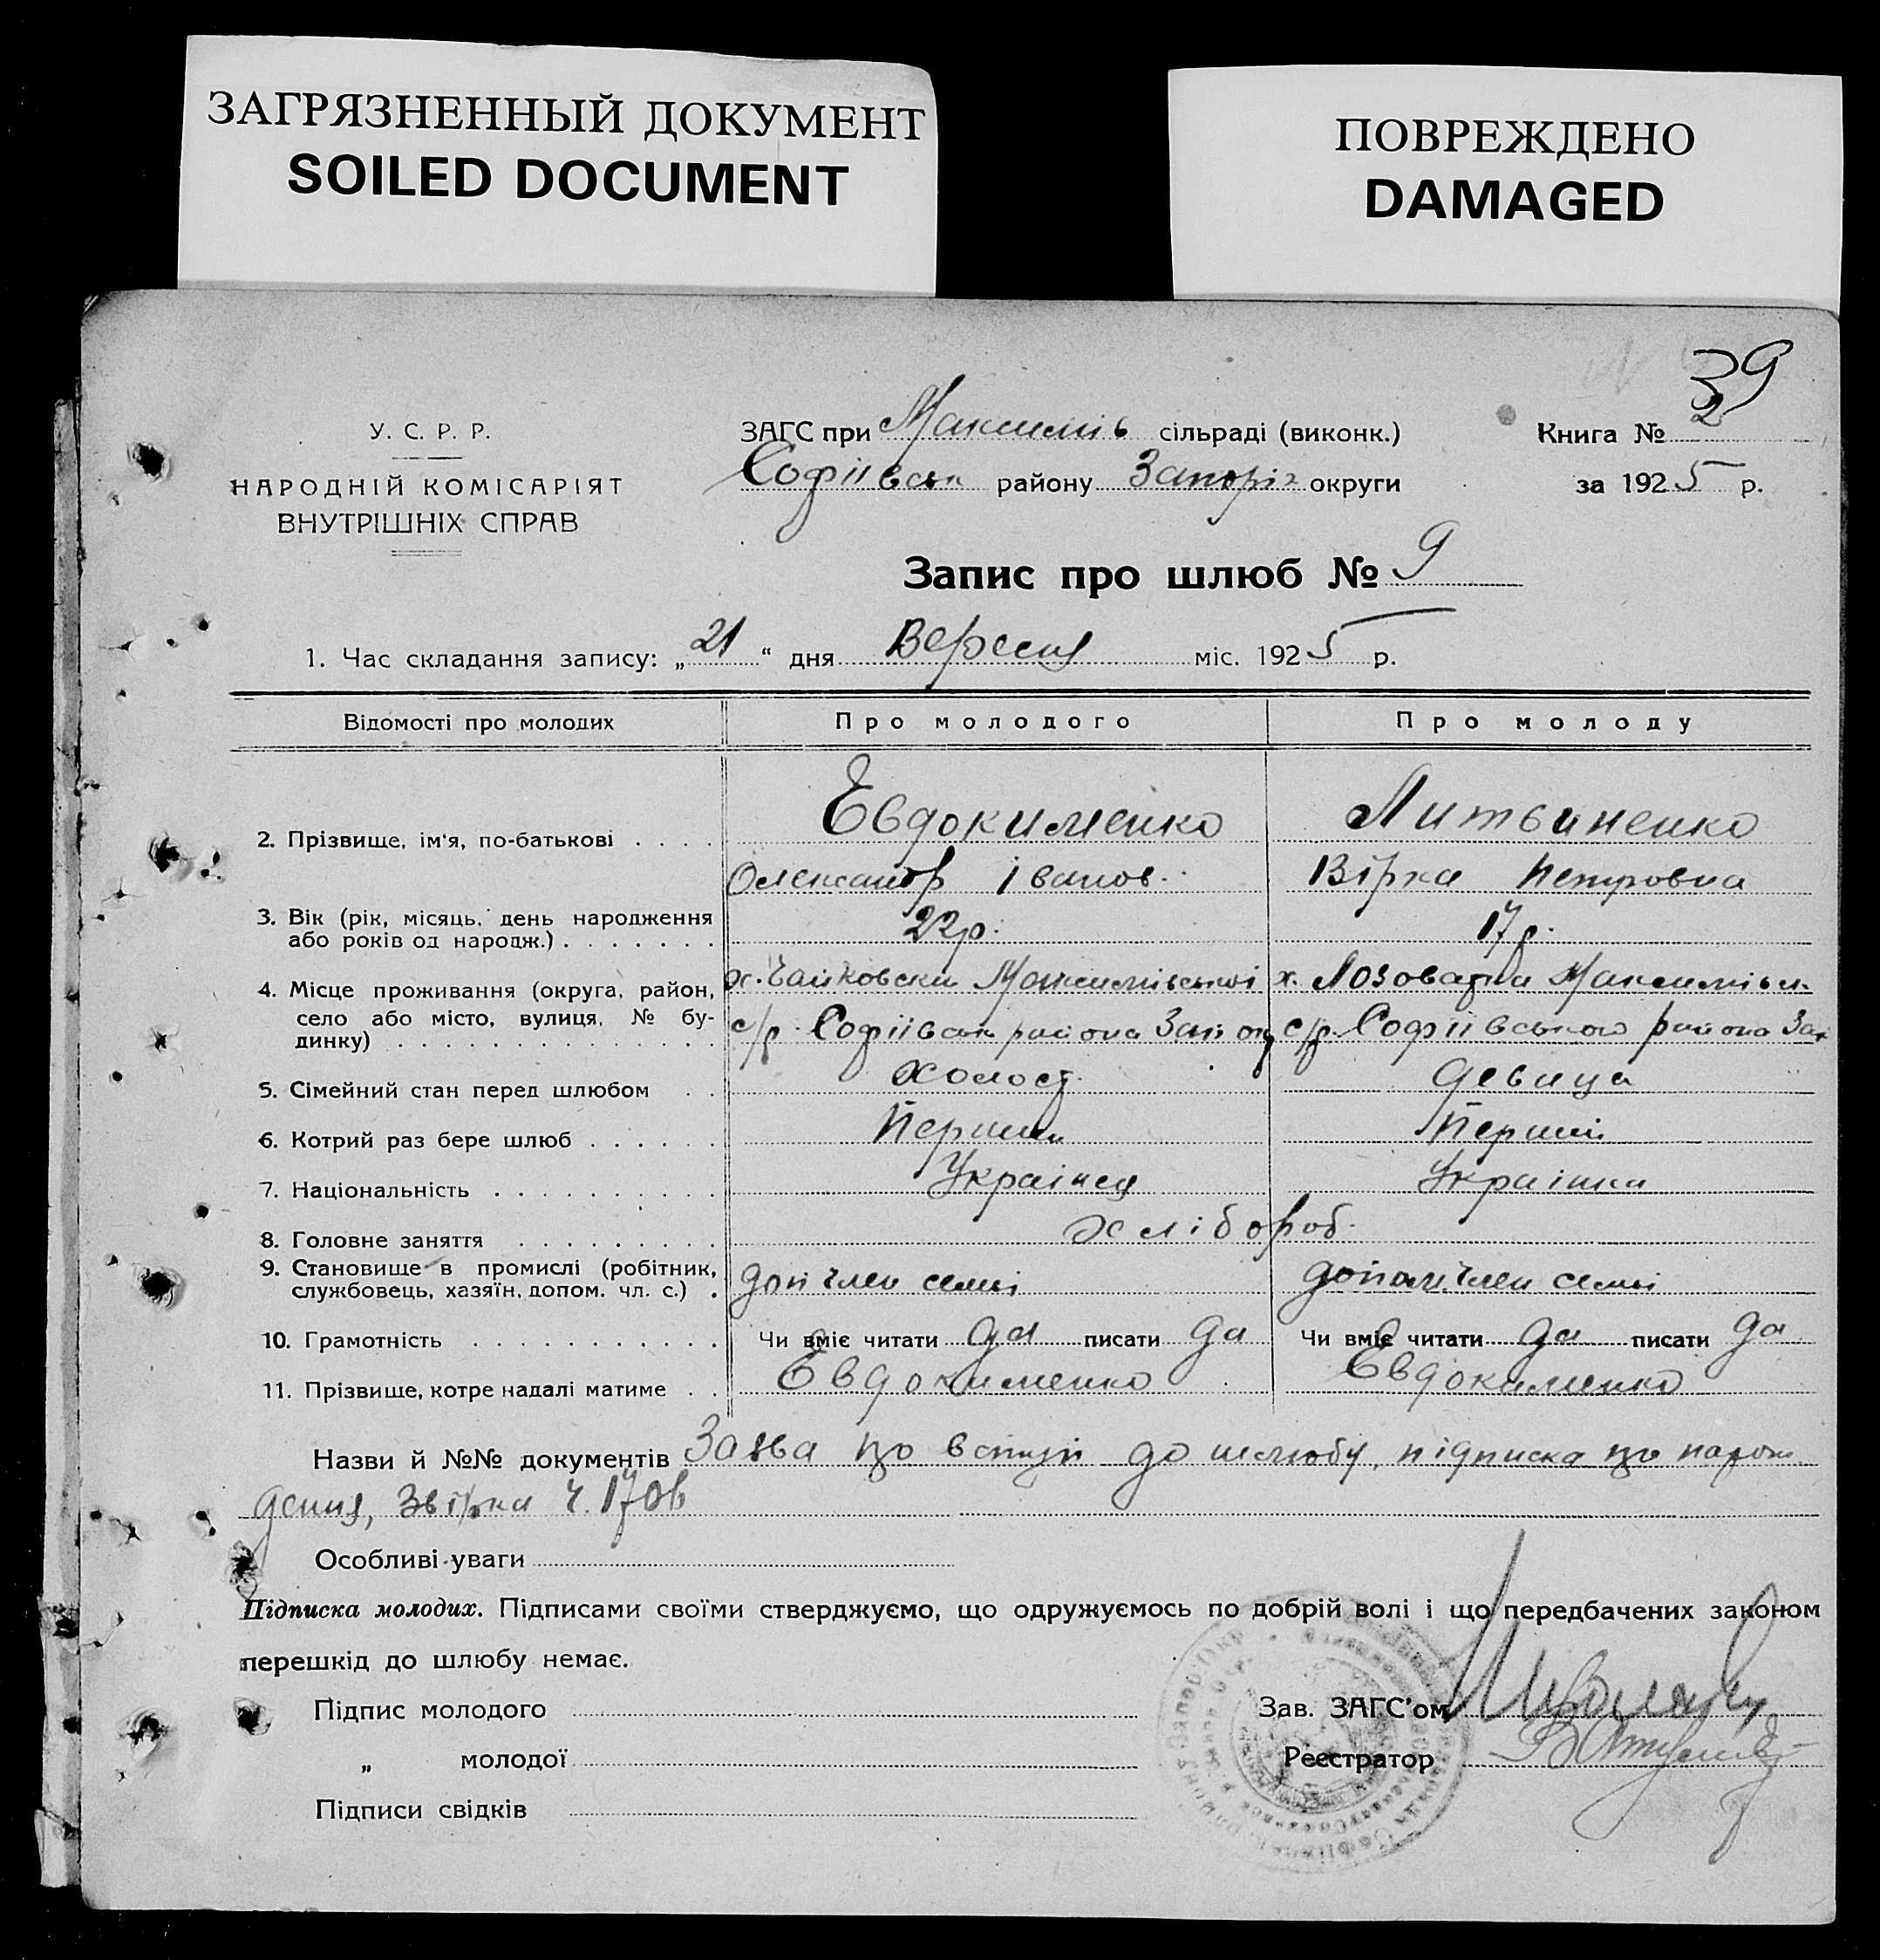 ЗАГРЯЗНЕННЫЙ ДОКУМЕНТ
SOILED DOCUMENT
ПОВРЕЖДЕНО
DAMAGED
39
У. С. Р. Р.
НАРОДНІЙ КОМІСАРІЯТ
ВНУТРІШНІХ СПРАВ
ЗАГС при Максимів сільраді (виконк.)
Софіівськ району Запоріз округи
Книга № 2
за 1925 р.
Запис про шлюб № 9
1. Час складання запису: „21“ дня Вересня міс. 1925 р.
Відомості про молодих Про молодого Про молоду
Евдокименко Литвиненко
2. Прізвище, ім'я, по-батькові . . . .
Олександр Іванов. Вірка Петровна
3. Вік (рік, місяць, день народження 22 р. 17 р.
або років од народж.) . . . . . . .
х. Чайковски Максимівськоі х. Лозоватка Максимівск.
4. Місце проживання (округа, район,
село або місто, вулиця, № бу- с/р. Софіівськ района Зап ок с/р. Софіівського района Зап
динку) . . . . . . . . . . . . . .
5. Сімейний стан перед шлюбом . . холост. девица
6. Котрий раз бере шлюб . . . . . . Перший Перший
7. Національність . . . . . . . . . . Украінец Украінка
8. Головне заняття . . . . . . . . . хлібороб.
9. Становище в промислі (робітник, доп член семьі допом. член семьі
службовець, хазяїн, допом. чл. с.) .
10. Грамотність . . . . . . . . . . . Чи вміє читати да писати да Чи вміє читати да писати да
11. Прізвище, котре надалі матиме . . Евдокименко Евдокименко
Назви й №№ документів Заява про вступ до шлюбу, підписка про нарож
дення, Звірка ч.
Особливі уваги
Підписка молодих. Підписами своїми стверджуємо, що одружуємось по добрій волі і що передбачених законом
перешкід до шлюбу немає.
Підпис молодого Зав. ЗАГС'ом
„ молодої Реєстратор
Підписи свідків